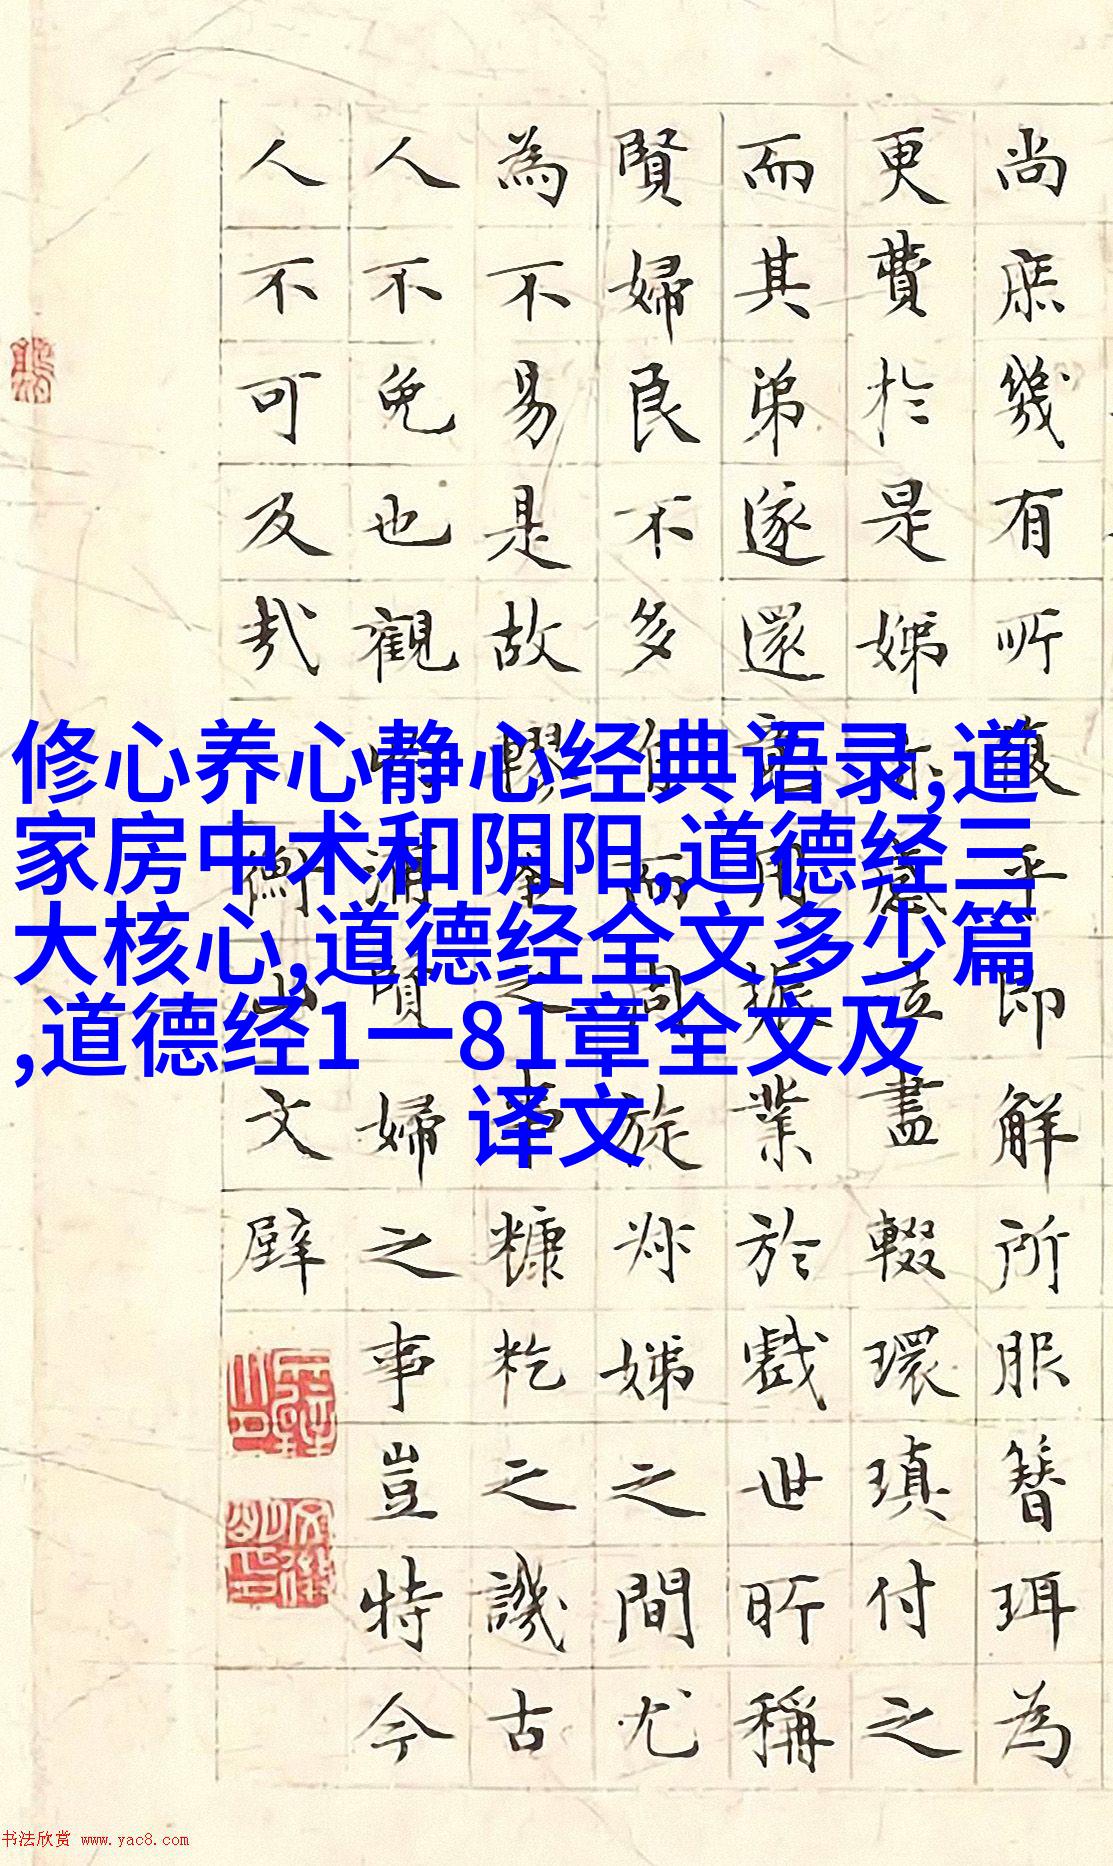 修心养心静心经典语录,道
家房中术和阴阳,道德经三
大核心,道德经全文多少篇
,道德经1一81章全文及
译文
尚庶幾有所乎即解所服簪珥為
更費於是娣盡輟環瑱付之
而其弟遂還用振業於戲世所稱
賢婦良不多而旋姒娣之間尤
為不易是故之事糠籺之譏古
人不免也觀婦之事豈特今
人不可及哉衡山文璧
书法欣赏 www.yac8.com